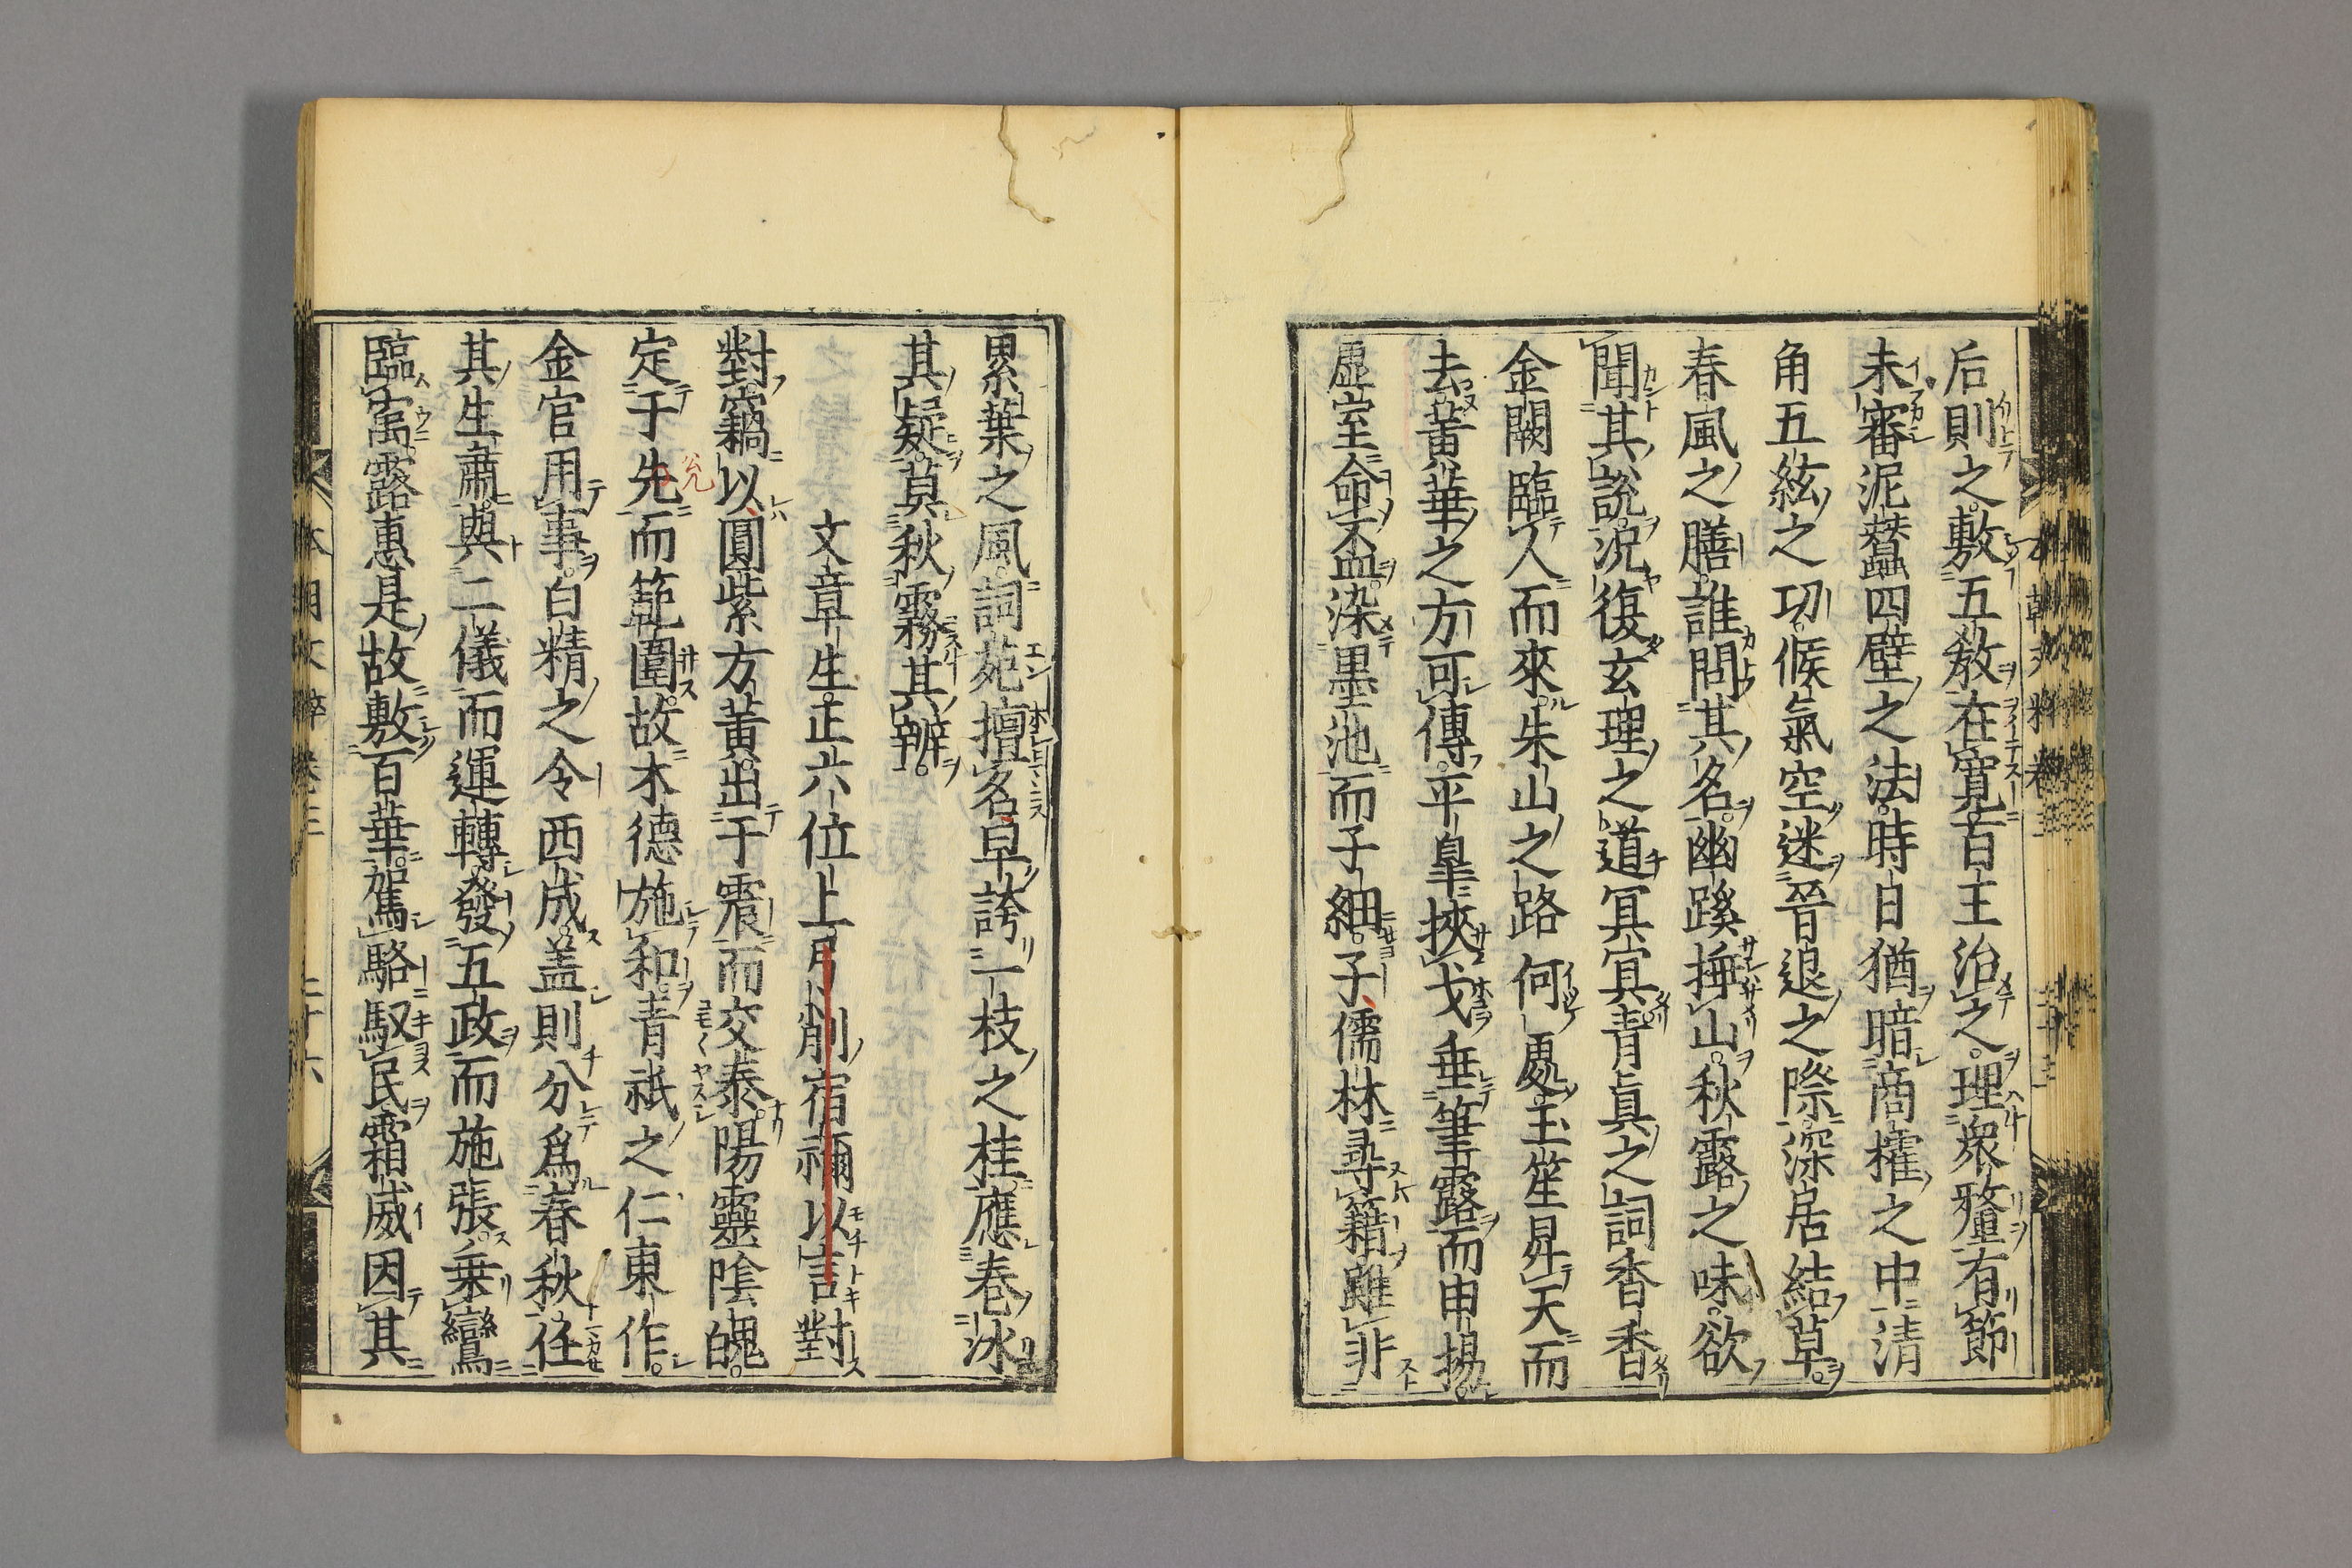 后則之敷五敎在寛百王治之理衆釐有節
未審泥蠶四壁之法時日猶暗商権之中清
角五絃之功候氣空迷晉退之際深居結草
春風之膳誰問其名幽蹊撫山秋露之味欲
聞其說況復玄理之道冥寞青眞之詞香香
金闕臨人而來朱山之路何處玉笙昇天而
去黃華之方可傳平皐挾戈垂筆露而申揚
虛室命盃染墨池而子細子儒林尋籍雖非
累葉之風詞苑擅名早誇一枝之桂應春冰
其疑莫秋霧其辨
文章生正六位上弓削宿禰以言對
對竊以圓紫方黃出于震而交泰陽靈陰魄
定于先而範圍故木德施和青祇之仁東作
金官用事白精之令西成盖則分爲春秋任
其生肅與二儀而運轉發五政而施張乗鸞
臨寓露惠是故敷百華駕駱馭民霜威因其
本朝文粹卷三
二十六